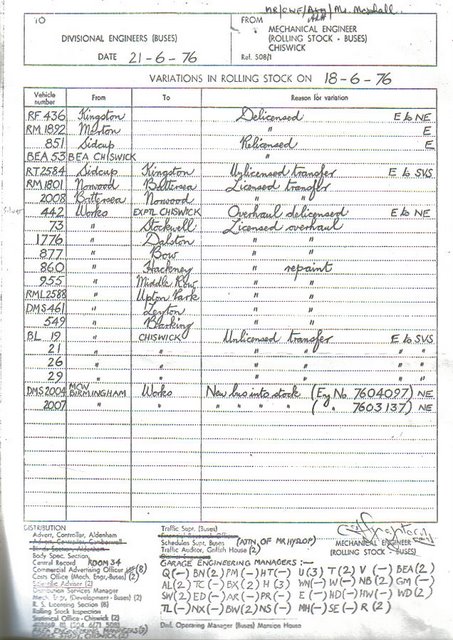 MR/CWF/Avg/Mr. Marshall.
TO
DIVISIONAL ENGINEERS (BUSES)
DATE 21-6-76
FROM
MECHANICAL ENGINEER
(ROLLING STOCK - BUSES)
CHISWICK
Ref. 508/1
VARIATIONS IN ROLLING STOCK ON 18-6-76
Vehicle number From To Reason for variation
RF 436 Kingston Delicensed E to NE
RM 1892 Merton " E
851 Sidcup Relicensed E
BEA 53 BEA CHISWICK "
RT 2584 Sidcup Kingston Unlicensed transfer E to SVS
RM 1801 Norwood Battersea Licensed transfer
2008 Battersea Norwood " "
Silver 442 Works EXPTL CHISWICK Overhaul delicensed E to NE
73 " Stockwell Licensed overhaul
1776 " Dalston " "
877 " Bow " "
860 " Hackney " repaint
955 " Middle Row " "
RML 2588 " Upton Park " "
DMS 461 " Leyton " "
549 " Barking " "
BL 19 " CHISWICK Unlicensed transfer E to SVS
21 " " " " " "
26 " " " " " "
29 " " " " " "
DMS 2004 MCW BIRMINGHAM Works New bus into stock (Eng No. 7604097) NE
2007 " " " " " " ( " 7603137) NE
DISTRIBUTION
Advert. Controller, Aldenham
Body Spec. Section
Central Record ROOM 34
Commercial Advertising Officer (8)
Costs Office (Mech. Engr.-Buses) (2)
Scientific Adviser (2)
Distribution Services Manager
Mech. Engr. (Development - Buses) (2)
R. S. Licensing Section (8)
Rolling Stock Inspection
Statistical Office - Chiswick (2)
Traffic Supt. (Buses)
Schedules Supt. Buses (ATTN. OF MR HYSLOP)
Traffic Auditor, Griffith House (2)
MECHANICAL ENGINEER
(ROLLING STOCK - BUSES)
GARAGE ENGINEERING MANAGERS :-
Q (-) BN (2) PM (-) HT (-) U (3) T (2) V (-) BEA (2)
AL (2) TC (-) BX (2) TH (3) WH (-) W (-) NB (2) GM (-)
SW (2) ED (-) AR (-) PR (-) E (-) HD (-) HW (-) WD (2)
TL (-) NX (-) BW (2) NS (-) MH (-) SE (-) R (2)
Divl. Operating Manager (Buses) Mansion House